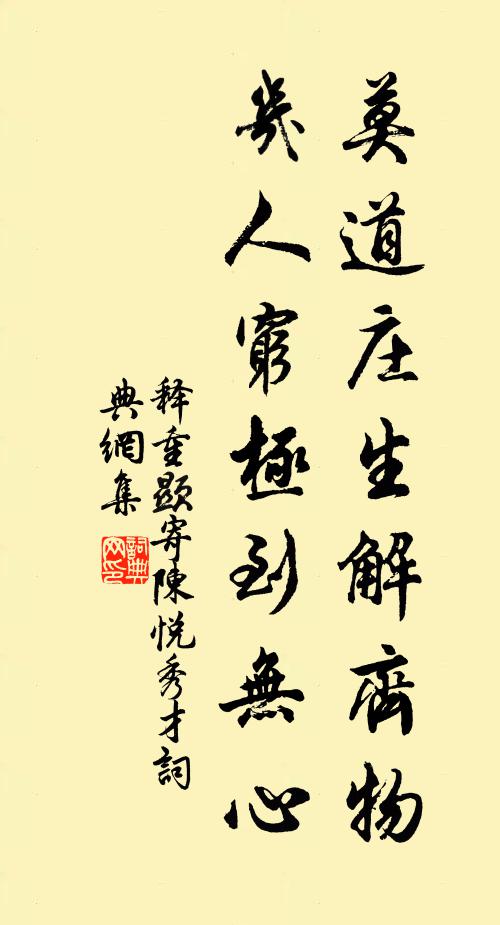 莫道庄生解齊物
幾人窮極到無心
释重顯寄陳悦秀才詞
典網集
詞典网印